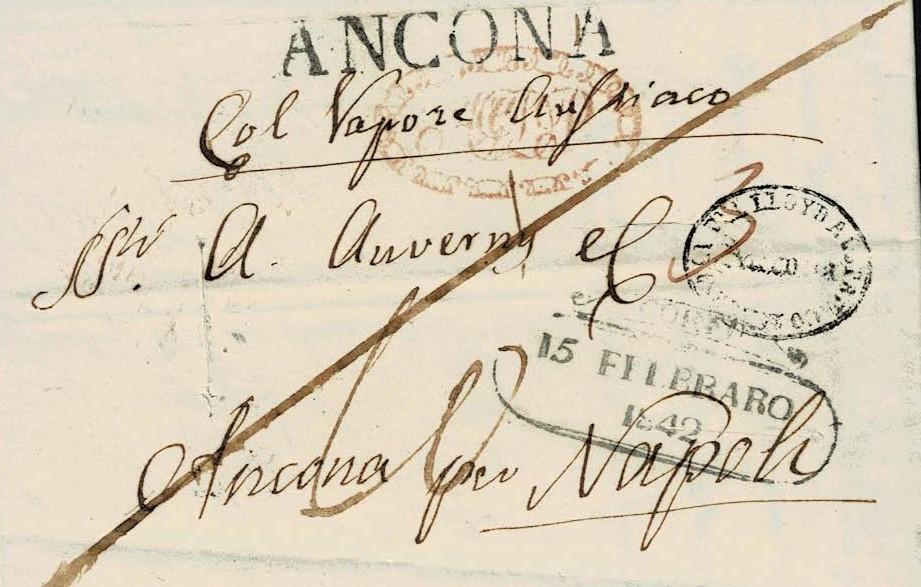 ANCONA
Col Vapore Austriaco
A. Auverny e C
3
LLOYD AUSTRIACO
CORFU
15 FEBBRARO
1842
Ancona per Napoli